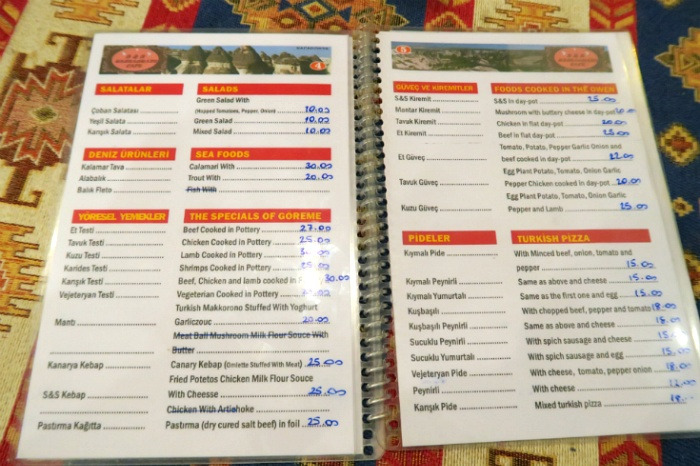 4
SALATALAR SALADS
Green Salad With
Çoban Salatası (Hopped Tomatoes, Pepper, Onion) 10.00
Yeşil Salata Green Salad 10.00
Karışık Salata Mixed Salad 10.00
DENİZ ÜRÜNLERİ SEA FOODS
Kalamar Tava Calamari With 30.00
Alabalık Trout With 20.00
Balık Fleto Fish With
YÖRESEL YEMEKLER THE SPECIALS OF GOREME
Et Testi Beef Cooked in Pottery 27.00
Tavuk Testi Chicken Cooked in Pottery 25.00
Kuzu Testi Lamb Cooked in Pottery
Karides Testi Shrimps Cooked in Pottery 25.00
Karışık Testi Beef, Chicken and lamb cooked in 30.00
Vejeteryan Testi Vegeterian Cooked in Pottery
Turkish Makkorono Stuffed With Yoghurt
Mantı Garliczouc 20.00
Meat Ball Mushroom Milk Flour Sauce With
Butter
Kanarya Kebap Canary Kebap (Omlette Stuffed With Meat) 25.00
Fried Potetos Chicken Milk Flour Souce
S&S Kebap With Cheesse 25.00
Chicken With Artichoke
Pastırma Kağıtta Pastırma (dry cured salt beef) in foil 25.00
5
GÜVEÇ VE KİREMİTLER FOODS COOKED IN THE OVEN
S&S Kiremit S&S in day-pot 25.00
Mantar Kiremit Mushroom with buttery cheese in day-pot 20.00
Tavuk Kiremit Chicken in flat day-pot 20.00
Et Kiremit Beef in flat day-pot 25.00
Tomato, Potato, Pepper Garlic Onion and
Et Güveç beef cooked in day-pot 22.00
Egg Plant Potato, Tomato, Onion Garlic
Tavuk Güveç Pepper Chicken cooked in day-pot 20.00
Egg Plant Potato, Tomato, Onion Garlic
Kuzu Güveç Pepper and Lamb 25.00
PİDELER TURKISH PIZZA
Kıymalı Pide With Minced beef, onion, tomato and
pepper 15.00
Kıymalı Peynirli Same as above and cheese 15.00
Kıymalı Yumurtalı Same as the first one and egg 15.00
Kuşbaşılı With chopped beef, pepper and tomato 18.00
Kuşbaşılı Peynirli Same as above and cheese 15.00
Sucuklu Peynirli With spich sausage and cheese 15.00
Sucuklu Yumurtalı With spich sausage and egg 15.00
Vejeteryan Pide With cheese, tomato, pepper onion 18.00
Peynirli With cheese 12.00
Karışık Pide Mixed turkish pizza 18.